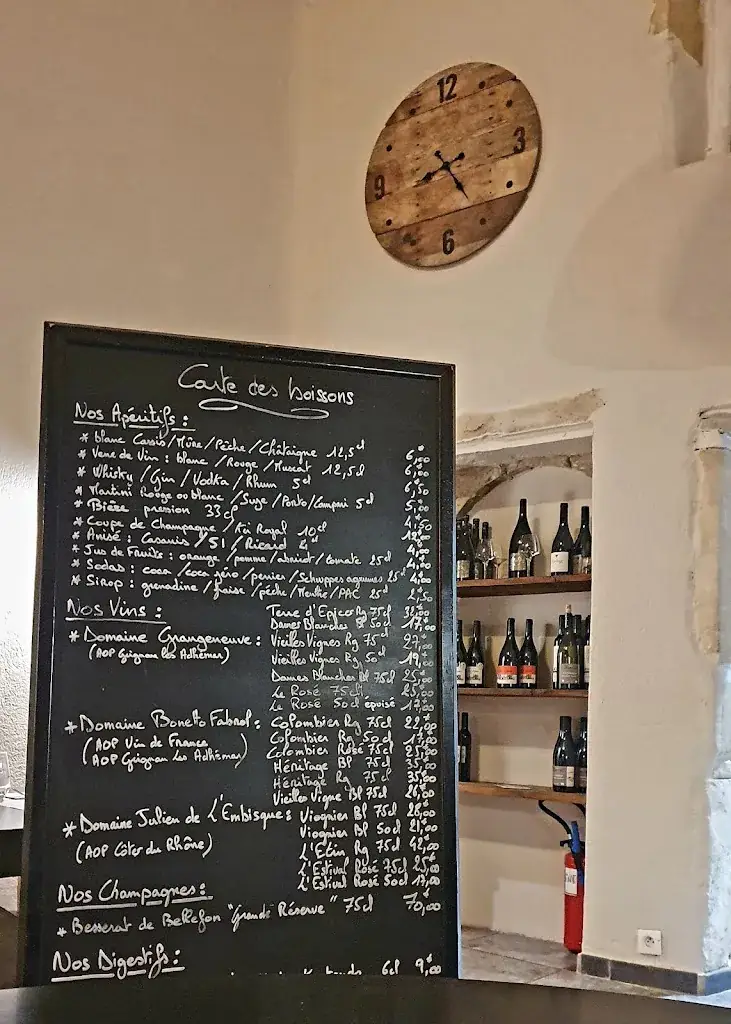 12
3
9
6
Carte des boissons
Nos Apéritifs :
* blanc Cassis / Mûre / Pêche / Châtaigne 12,5cl 6,00
* Verre de Vin : blanc / Rouge / Muscat 12,5cl 6,00
* Whisky / Gin / Vodka / Rhum 5cl 6,50
* Martini Rouge ou blanc / Suze / Porto / Campari 5cl 5,00
* Bière pression 33cl 4,50
* Coupe de Champagne / Royal 10cl 12,00
* Anisé : Casanis / 51 / Ricard 4,00
* Jus de Fruits : orange / pomme / abricot / tomate 25cl 4,00
* Sodas : coca / coca zéro / perrier / Schweppes agrumes 25cl 4,00
* Sirop : grenadine / fraise / pêche / Menthe / PAC 25cl 2,50
Nos Vins :
* Domaine Grangeneuve :
(AOP Grignan les Adhémar)
Terre d'Epices Rg 75cl
Dames Blanches Bl 50cl 17,00
Vieilles Vignes Rg 75cl 27,00
Vieilles Vignes Rg 50cl 19,00
Dames Blanches Bl 75cl 25,00
Le Rosé 75cl 25,00
Le Rosé 50cl épuisé 17,00
* Domaine Bonetto Fabrol :
(AOP Vin de France
AOP Grignan les Adhémar)
Colombier Rg 75cl 22,00
Colombier Rg 50cl 17,00
Colombier Rosé 75cl 25,00
Héritage Bl 75cl 35,00
Héritage Rg 75cl 35,00
Vieilles Vigne Bl 75cl 26,00
* Domaine Julien de L'Embisque :
(AOP Côtes du Rhône)
Viognier Bl 75cl 28,00
Viognier Bl 50cl 21,00
L'Etin Rg 75cl 42,00
L'Estival Rosé 75cl 25,00
L'Estival Rosé 50cl 17,00
Nos Champagnes :
* Besserat de Bellefon "Grande Réserve" 75cl 70,00
Nos Digestifs :
6cl 9,00